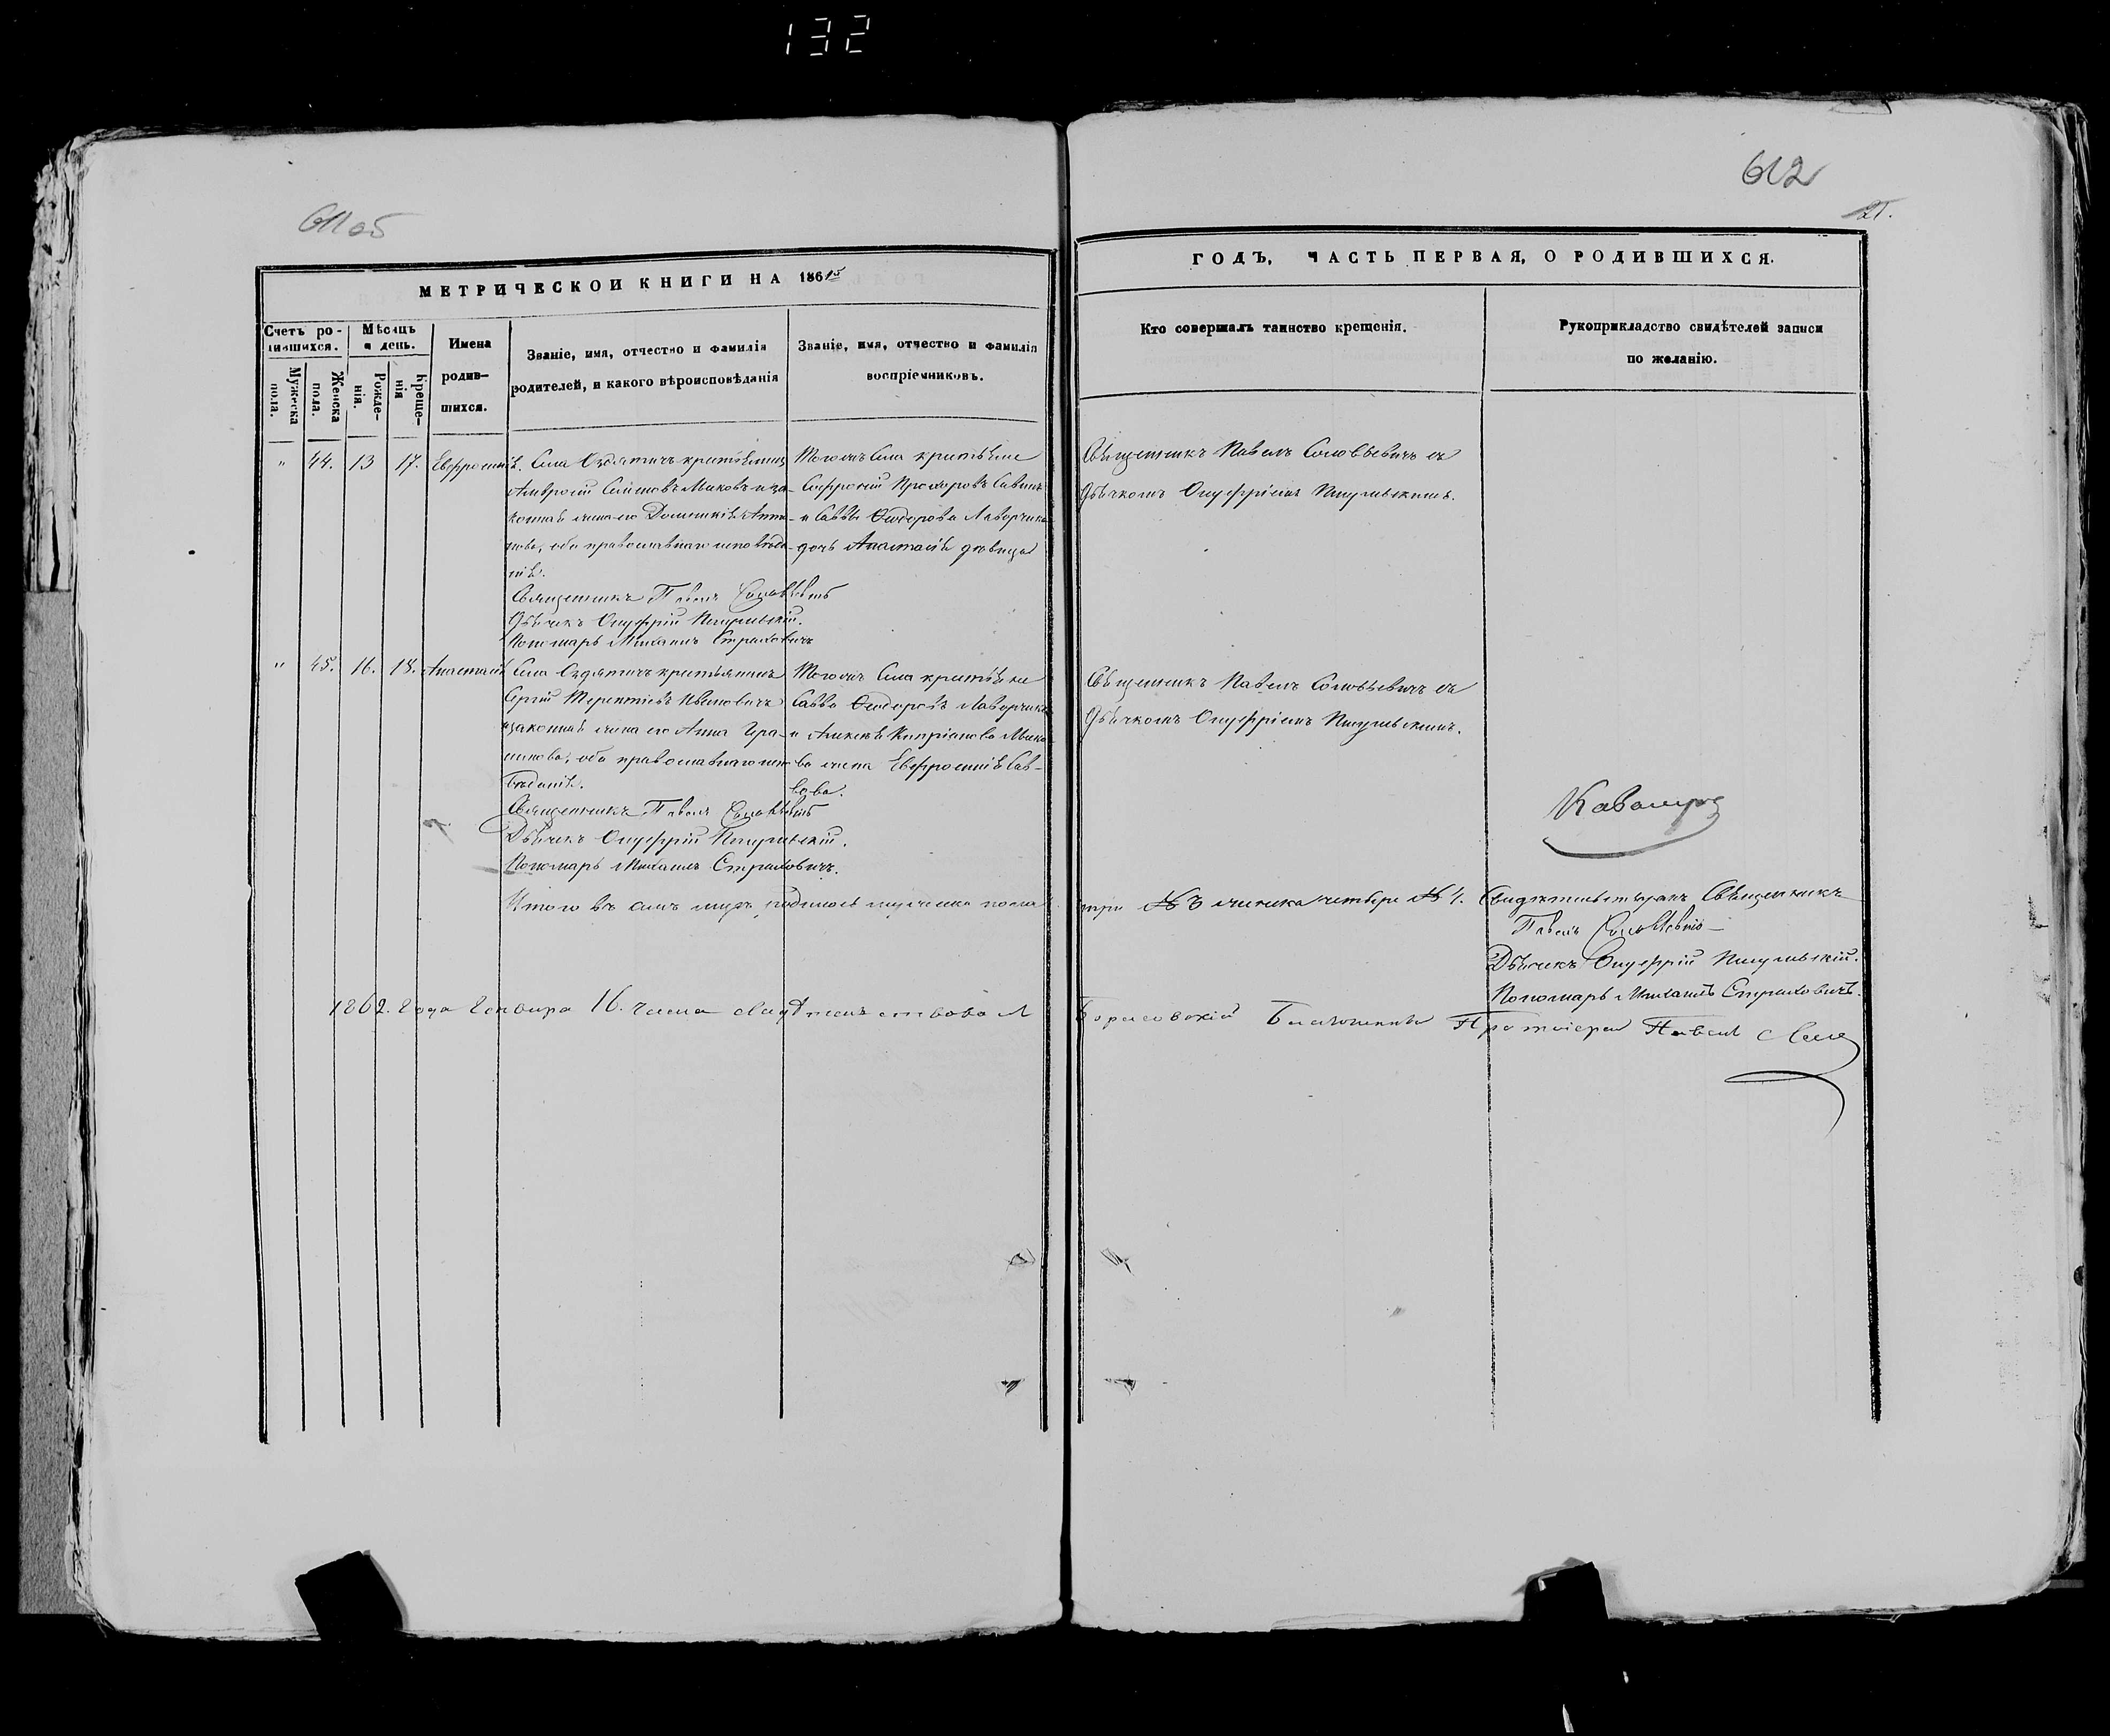 132
611 об
612
21.
МЕТРИЧЕСКОЙ КНИГИ НА 1861й
ГОДЪ, ЧАСТЬ ПЕРВАЯ, О РОДИВШИХСЯ.
Счетъ ро-
дившихся.
Мужеска
пола.
Женска
пола.
Мѣсяцъ
и день.
Рожде-
нія.
Креще-
нія
Имена
родив-
шихся.
Званіе, имя, отчество и фамилія
родителей, и какого вѣроисповѣданія
Званіе, имя, отчество и фамилія
воспріемниковъ.
Кто совершалъ таинство крещенія.
Рукоприкладство свидѣтелей записи
по желанію.
" 44. 13 17. Евфросинія.
Села крестьянинъ
Амвросій и за-
конная жена его Домникія
оба православнаго исповѣда-
нія.
Священникъ Павелъ Соловьевичъ
Дьячекъ Онуфрій
Пономарь Михаилъ Страховичъ
Тогожъ Села крестьяне
Софроній Прохоровъ Савинъ
и Саввы Ѳеодорова
дочь Анастасія дѣвица
Священникъ Павелъ Соловьевичъ съ
Дьячкомъ Онуфріемъ
" 45. 16. 18. Анастасія
Села крестьянинъ
Сергій Терентіевъ Ивановичъ
законная жена его Анна Гера-
симова, оба православнаго испо-
вѣданія.
Священникъ Павелъ Соловьевичъ
Дьячекъ Онуфрій
Пономарь Михаилъ Страховичъ.
Тогожъ Села крестьяне
Савва Ѳеодоровъ
и Алексѣя Кипріанова
ва жена Евфросинія Сав-
вова.
Священникъ Павелъ Соловьевичъ съ
Дьячкомъ Онуфріемъ
Итого въ семъ родилось мужеска пола три № 3 женска четыре № 4.
Свидѣтельствуемъ Священникъ
Павелъ Соловьевичъ
Дьячекъ Онуфрій
Пономарь Михаилъ Страховичъ.
1862. Года Генваря 16. числа свидѣтельствовалъ Борисовскій Благочинный Протоіерей Павелъ